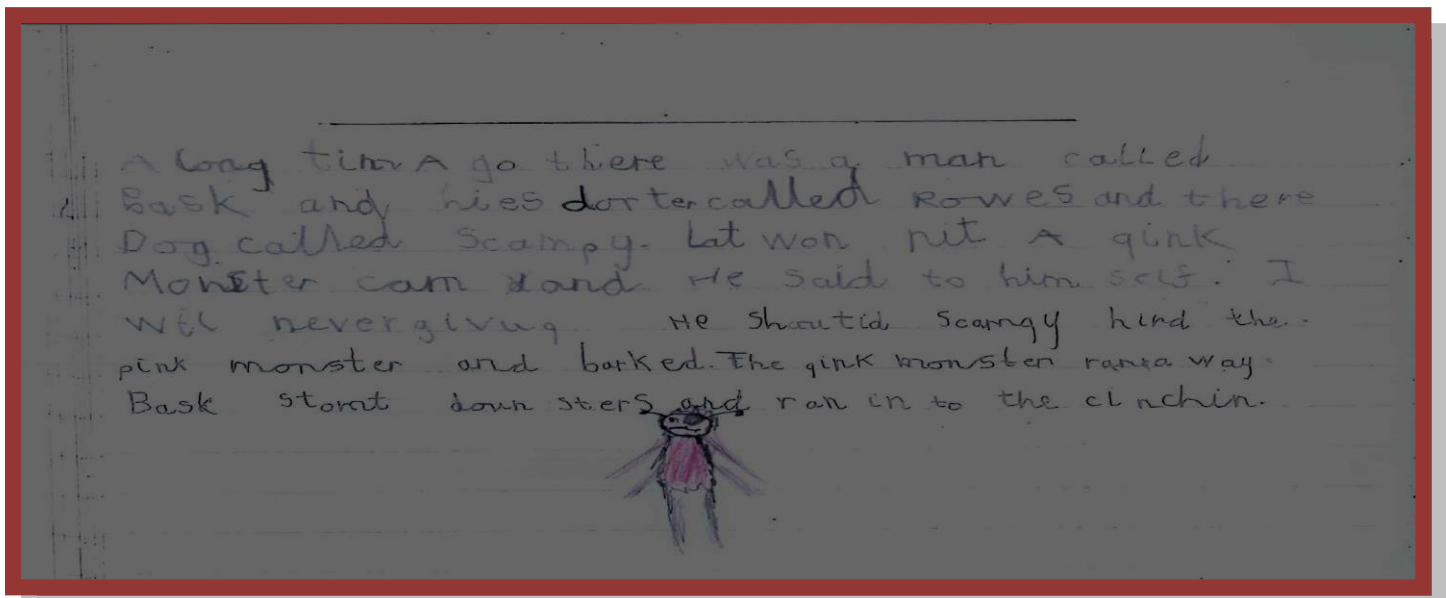 A long tim A go there was a man called
Bask and hies dorter called Rowes and there
Dog called Scampy. Lat won nit A qink
Monster cam and He said to him self. I
wil never givuq He shoutid Scamqy hird the
pink monster and barked. The qink monster ran a way.
Bask stomt doun sters and ran in to the cinchin.